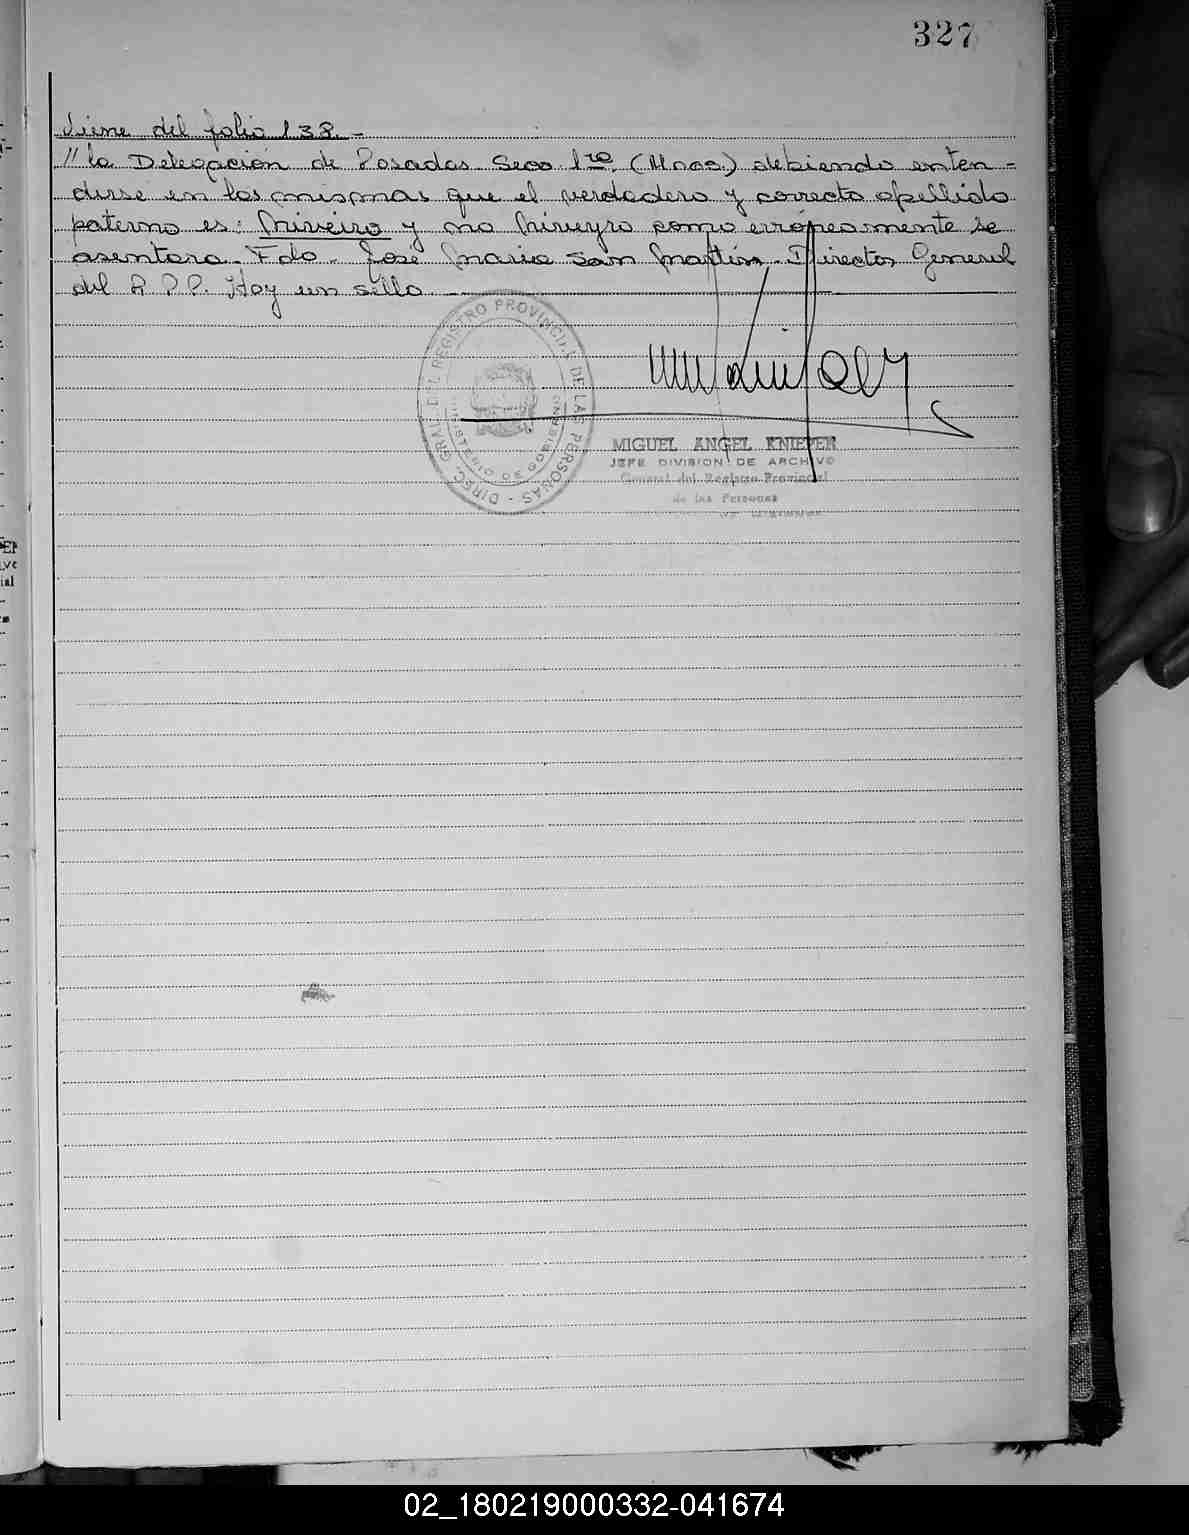 327
Viene del folio 138.-
"la Delegación de Posadas Secc 1ra. (Mnes.) debiendo enten=
derse en los mismas que el verdadero y correcto apellido
paterno es: Miñeiro y no Miñeyro como erróneamente se
asentara. Fdo. José Maria San Martin. Director General
del R.P.P. Hay un sello
DIREC. GRAL. DEL REGISTRO PROVINCIAL DE LAS PERSONAS -
MINISTERIO DE GOBIERNO
MIGUEL ANGEL KNIEPER
JEFE DIVISION DE ARCHIVO
General del Registro Provincial
de las Personas
02_180219000332-041674